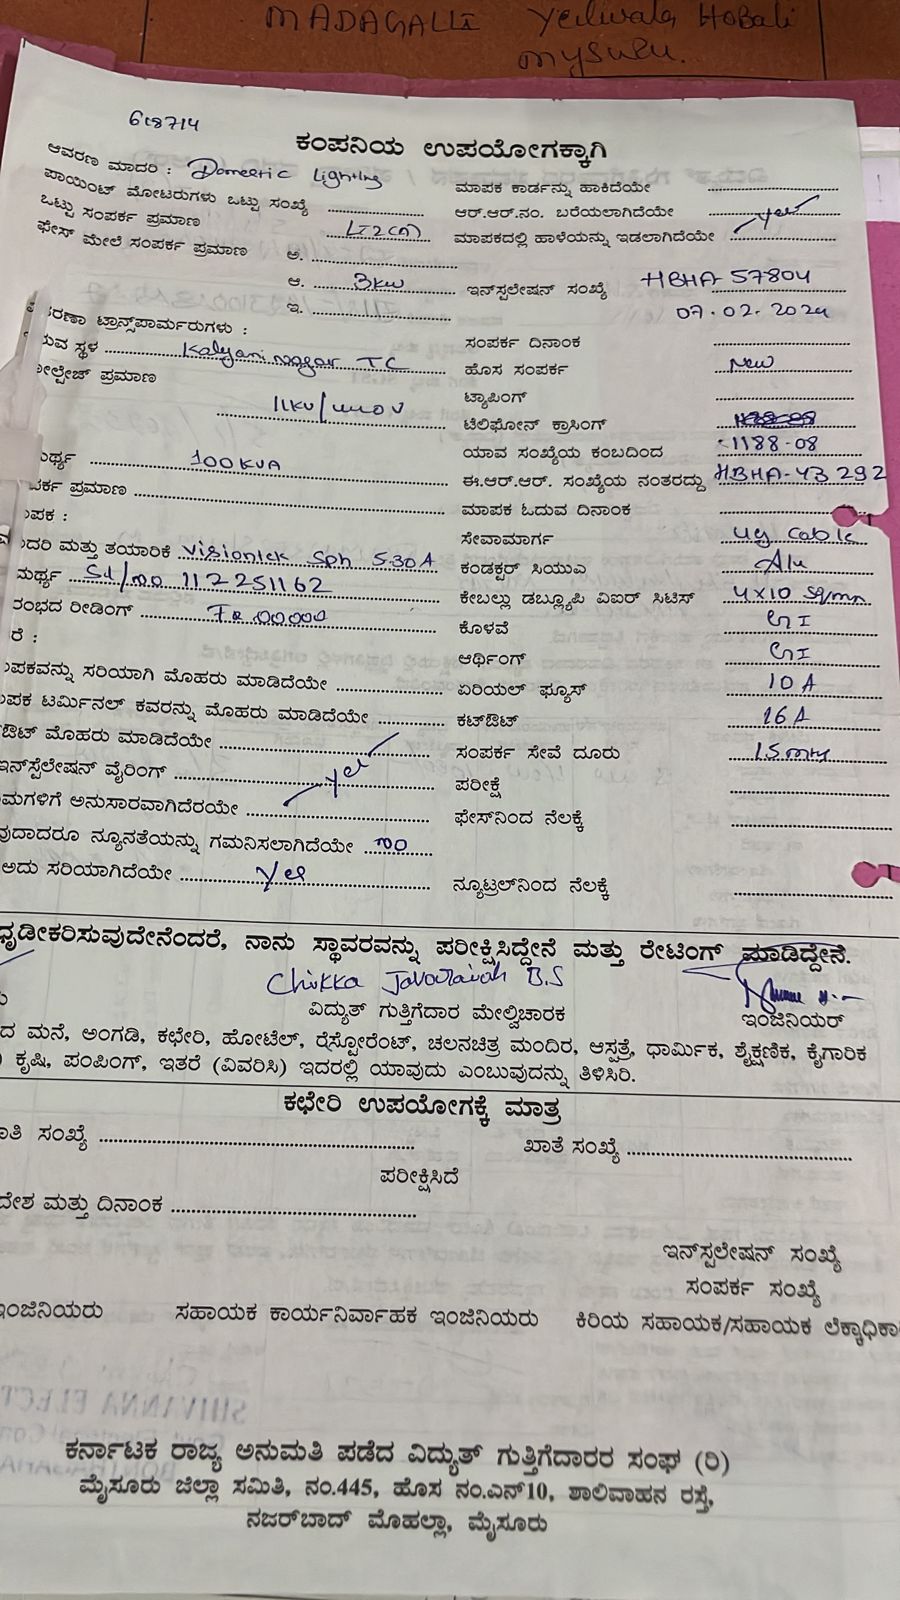 MADAGALLI Yelwala Hobali
Mysuru.
618714
ಕಂಪನಿಯ ಉಪಯೋಗಕ್ಕಾಗಿ
ಆವರಣ ಮಾದರಿ : Domestic Lighting
ಮಾಪಕ ಕಾರ್ಡನ್ನು ಹಾಕಿದೆಯೇ
ಪಾಯಿಂಟ್ ಮೋಟರುಗಳು ಒಟ್ಟು ಸಂಖ್ಯೆ
ಆರ್.ಆರ್.ನಂ. ಬರೆಯಲಾಗಿದೆಯೇ
ಒಟ್ಟು ಸಂಪರ್ಕ ಪ್ರಮಾಣ LT2(a)
ಮಾಪಕದಲ್ಲಿ ಹಾಳೆಯನ್ನು ಇಡಲಾಗಿದೆಯೇ yes
ಫೇಸ್ ಮೇಲೆ ಸಂಪರ್ಕ ಪ್ರಮಾಣ ಅ.
ಆ. 3KW
ಇನ್‌ಸ್ಪಲೇಷನ್ ಸಂಖ್ಯೆ HBHA-57804
ಇ.
07.02.2024
ಸಂಪರ್ಕ ದಿನಾಂಕ
ರಣಾ ಟ್ರಾನ್ಸ್‌ಪಾರ್ಮರುಗಳು :
ರುವ ಸ್ಥಳ Kalyani nagar TC
ಹೊಸ ಸಂಪರ್ಕ New
ೋಲ್ಟೇಜ್ ಪ್ರಮಾಣ
ಟ್ಯಾಪಿಂಗ್
11KV/
ಟೆಲಿಫೋನ್ ಕ್ರಾಸಿಂಗ್
ಯಾವ ಸಂಖ್ಯೆಯ ಕಂಬದಿಂದ 1188-08
ಮರ್ಥ್ಯ 100KVA
ಈ.ಆರ್.ಆರ್. ಸಂಖ್ಯೆಯ ನಂತರದ್ದು HBHA-43292
ಪರ್ಕ ಪ್ರಮಾಣ
ಮಾಪಕ ಓದುವ ದಿನಾಂಕ
ಾಪಕ :
ಸೇವಾಮಾರ್ಗ ug Cable
ಾದರಿ ಮತ್ತು ತಯಾರಿಕೆ Visiontek Sph 5-30A
ಕಂಡಕ್ಟರ್ ಸಿಯುಎ Alu
ಮರ್ಥ್ಯ Sl/no 112251162
ಕೇಬಲ್ಲು ಡಬ್ಲ್ಯೂಪಿ ವಿಐರ್ ಸಿಟಿಸ್ 4x10 Sqmm
ರಂಭದ ರೀಡಿಂಗ್ FR 00000
ಕೊಳವೆ GI
ರೆ :
ಆರ್ಥಿಂಗ್ GI
ಾಪಕವನ್ನು ಸರಿಯಾಗಿ ಮೊಹರು ಮಾಡಿದೆಯೇ
ಏರಿಯಲ್ ಫ್ಯೂಸ್ 10A
ಾಪಕ ಟರ್ಮಿನಲ್ ಕವರನ್ನು ಮೊಹರು ಮಾಡಿದೆಯೇ
ಕಟ್‌ಔಟ್ 16A
ಔಟ್ ಮೊಹರು ಮಾಡಿದೆಯೇ
ಸಂಪರ್ಕ ಸೇವೆ ದೂರು 15 mtrs
ಇನ್‌ಸ್ಪೆಲೇಷನ್ ವೈರಿಂಗ್ yes
ಪರೀಕ್ಷೆ
ಮಗಳಿಗೆ ಅನುಸಾರವಾಗಿದೆರಯೇ
ಫೇಸ್‌ನಿಂದ ನೆಲಕ್ಕೆ
ವುದಾದರೂ ನ್ಯೂನತೆಯನ್ನು ಗಮನಿಸಲಾಗಿದೆಯೇ no
ಅದು ಸರಿಯಾಗಿದೆಯೇ Yes
ನ್ಯೂಟ್ರಲ್‌ನಿಂದ ನೆಲಕ್ಕೆ
ಧೃಡೀಕರಿಸುವುದೇನೆಂದರೆ, ನಾನು ಸ್ಥಾವರವನ್ನು ಪರೀಕ್ಷಿಸಿದ್ದೇನೆ ಮತ್ತು ರೇಟಿಂಗ್ ಮಾಡಿದ್ದೇನೆ.
Chikka Javaraiah B.S
ವಿದ್ಯುತ್ ಗುತ್ತಿಗೆದಾರ ಮೇಲ್ವಿಚಾರಕ
ಇಂಜಿನಿಯರ್
ದ ಮನೆ, ಅಂಗಡಿ, ಕಛೇರಿ, ಹೋಟೆಲ್, ರೆಸ್ಟೋರೆಂಟ್, ಚಲನಚಿತ್ರ ಮಂದಿರ, ಆಸ್ಪತ್ರೆ, ಧಾರ್ಮಿಕ, ಶೈಕ್ಷಣಿಕ, ಕೈಗಾರಿಕ
) ಕೃಷಿ, ಪಂಪಿಂಗ್, ಇತರೆ (ವಿವರಿಸಿ) ಇದರಲ್ಲಿ ಯಾವುದು ಎಂಬುವುದನ್ನು ತಿಳಿಸಿರಿ.
ಕಛೇರಿ ಉಪಯೋಗಕ್ಕೆ ಮಾತ್ರ
ಾತಿ ಸಂಖ್ಯೆ
ಖಾತೆ ಸಂಖ್ಯೆ
ಪರೀಕ್ಷಿಸಿದೆ
ದೇಶ ಮತ್ತು ದಿನಾಂಕ
ಇನ್‌ಸ್ಪಲೇಷನ್ ಸಂಖ್ಯೆ
ಸಂಪರ್ಕ ಸಂಖ್ಯೆ
ಇಂಜಿನಿಯರು
ಸಹಾಯಕ ಕಾರ್ಯನಿರ್ವಾಹಕ ಇಂಜಿನಿಯರು
ಕಿರಿಯ ಸಹಾಯಕ/ಸಹಾಯಕ ಲೆಕ್ಕಾಧಿಕಾ
ಕರ್ನಾಟಕ ರಾಜ್ಯ ಅನುಮತಿ ಪಡೆದ ವಿದ್ಯುತ್ ಗುತ್ತಿಗೆದಾರರ ಸಂಘ (ರಿ)
ಮೈಸೂರು ಜಿಲ್ಲಾ ಸಮಿತಿ, ನಂ.445, ಹೊಸ ನಂ.ಎನ್10, ಶಾಲಿವಾಹನ ರಸ್ತೆ,
ನಜರ್‌ಬಾದ್ ಮೊಹಲ್ಲಾ, ಮೈಸೂರು